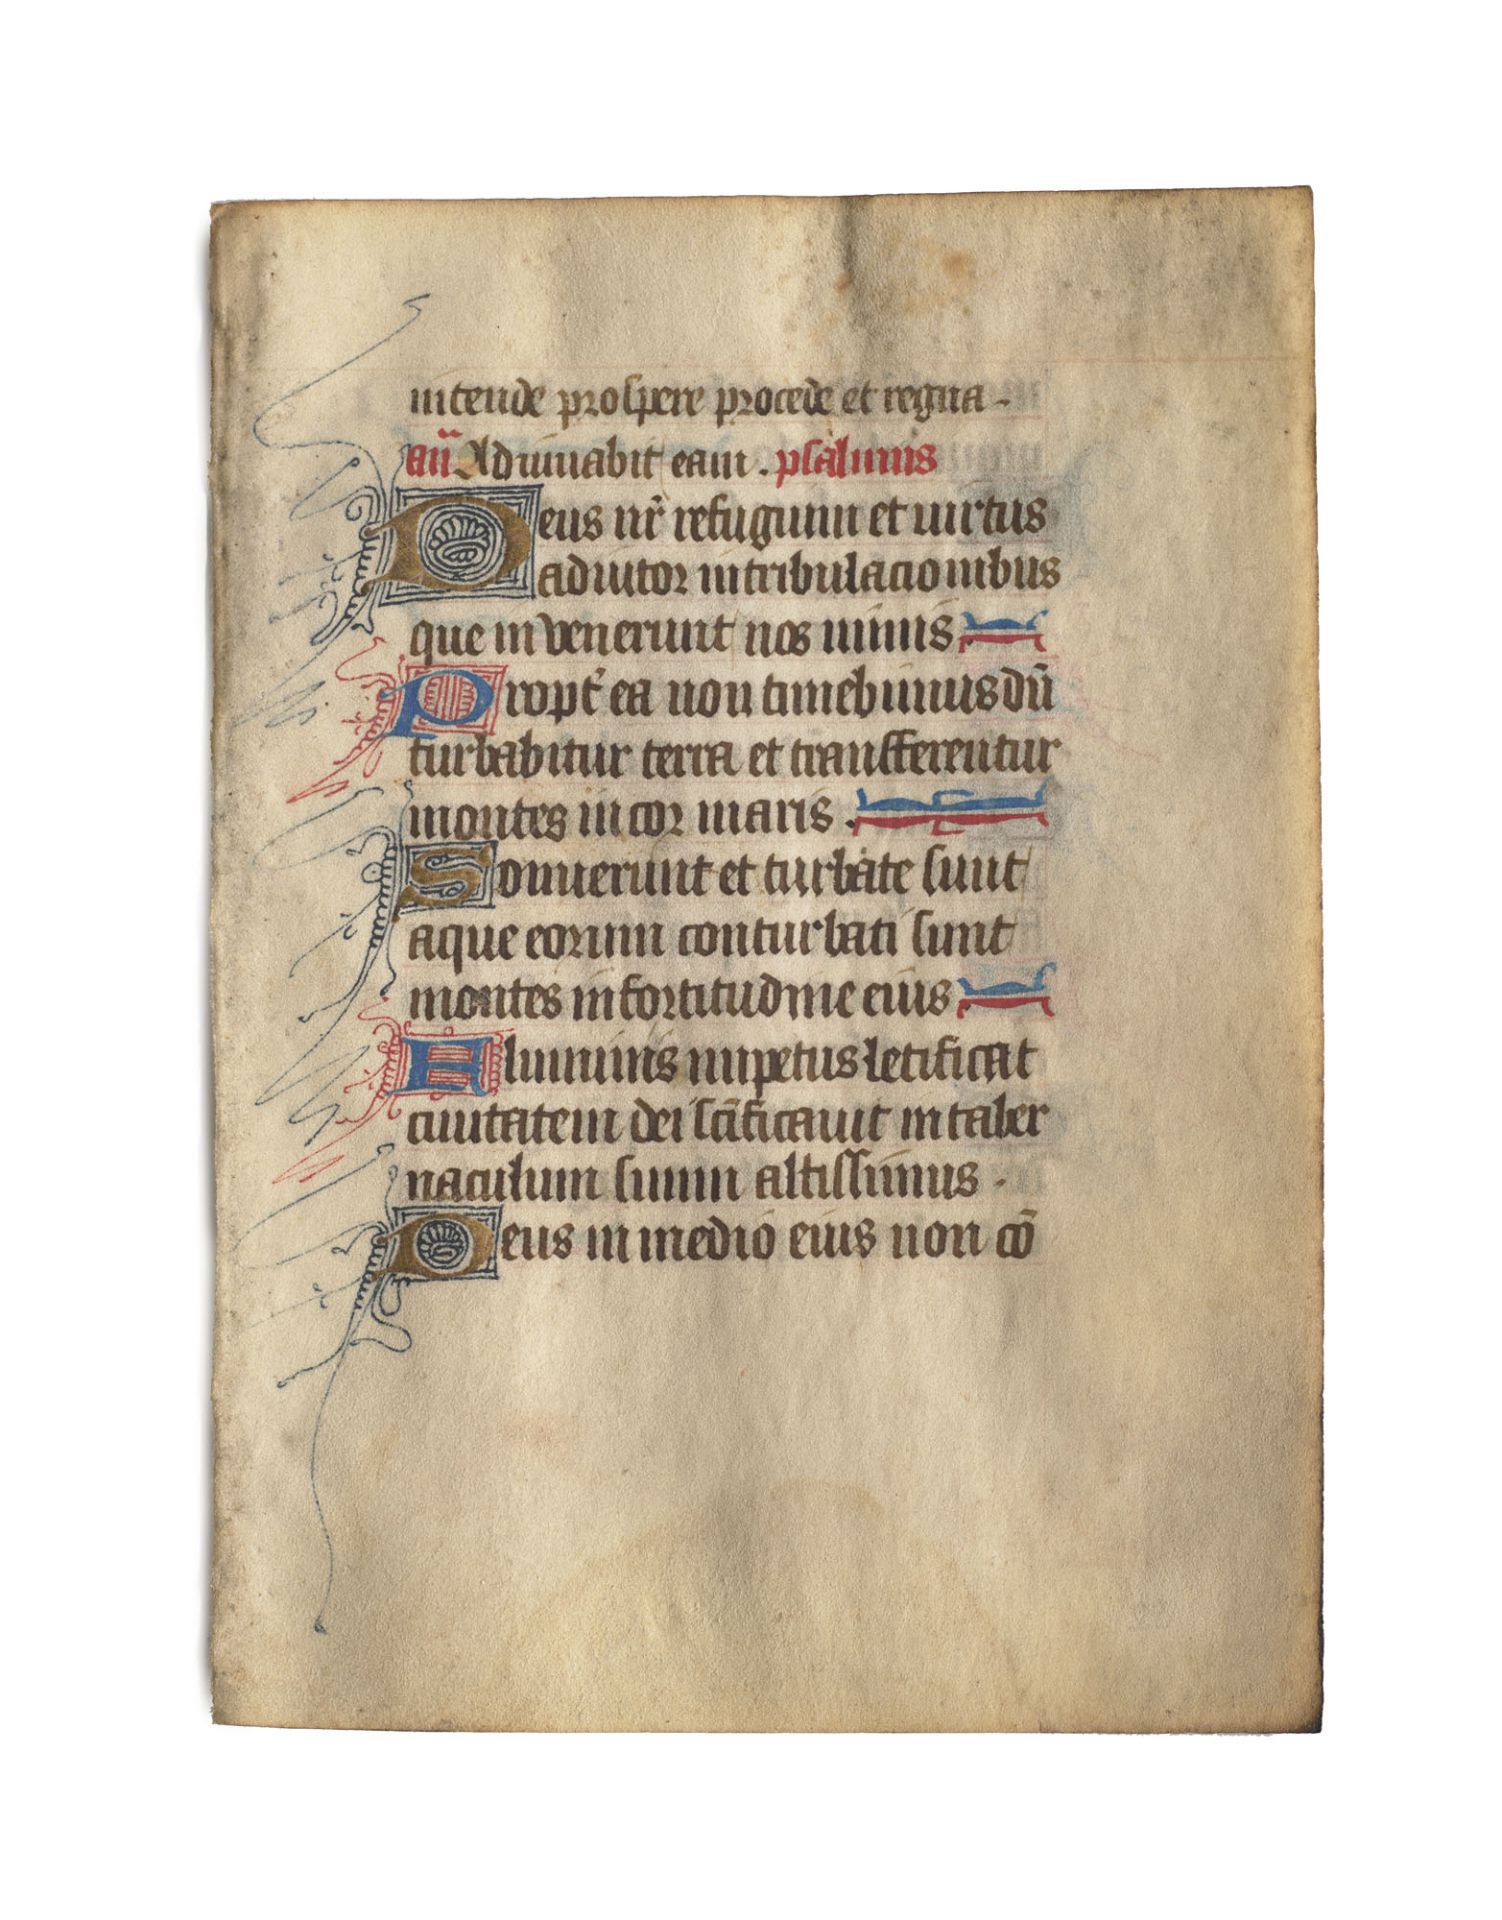 intende prospere procede et regna.
añ Adiuuabit eam. psalmus
Deus nr̄ refugium et uirtus
adiutor in tribulacionibus
que in venerunt nos nimis.
Propt̄ ea non timebimus dū
turbabitur terra et transferentur
montes in cor maris.
Sonuerunt et turbate sunt
aque eorum conturbati sunt
montes in fortitudine eius
Fluminis impetus letificat
ciuitatem dei sc̄ificauit in taber
naculum suum altissimus.
Deus in medio eius non cō